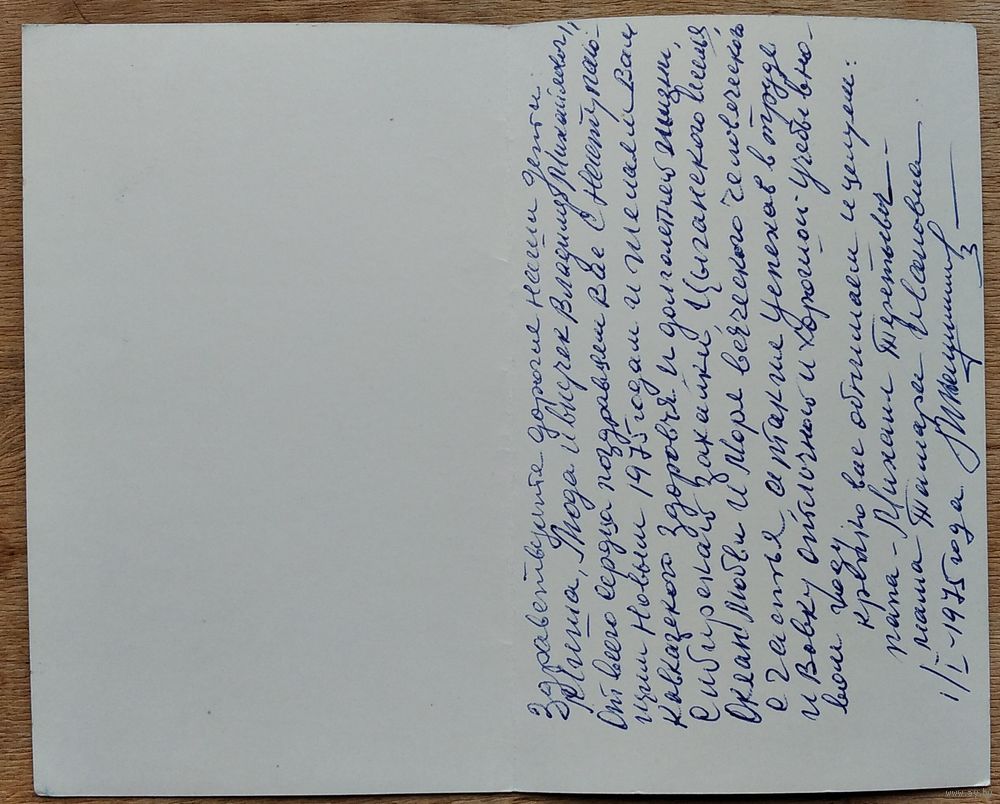 Здравствуйте дорогие наши дети
Миша, Тода и внучек Владимир Михайлович,
От всего сердца поздравляем Вас с Наступаю-
щим Новым 1975 годом и желаем Вам
Кавказского здоровья и долголетней жизни,
Сибирской закалки, Цыганского веселья,
Океан любви и Море всяческого человеческого
счастья а также успехов в труде
и Вовку отличной и дорогой учебы в но-
вом году
крепко вас обнимаем и целуем:
папа - Михаил
мама Тамара Ивановна
1/I - 1975 года
www.ay.by